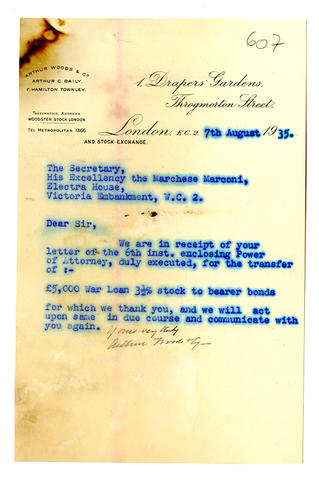 607
ARTHUR WOODS & Co
ARTHUR C. BAILY.
F. HAMILTON TOWNLEY.
TELEGRAPHIC ADDRESS.
WOODSTER, STOCK, LONDON.
TEL. METROPOLITAN 1366
1, Drapers' Gardens,
Throgmorton Street,
London, E.C. 2. 7th August 1935.
AND STOCK EXCHANGE.
The Secretary,
His Excellency the Marchese Marconi,
Electra House,
Victoria Embankment, W.C. 2.
Dear Sir,
We are in receipt of your
letter of the 6th inst. enclosing Power
of Attorney, duly executed, for the transfer
of :-
£5,000 War Loan 3½% stock to bearer bonds
for which we thank you, and we will act
upon same in due course and communicate with
you again.
Yours very truly
Arthur Woods & Co